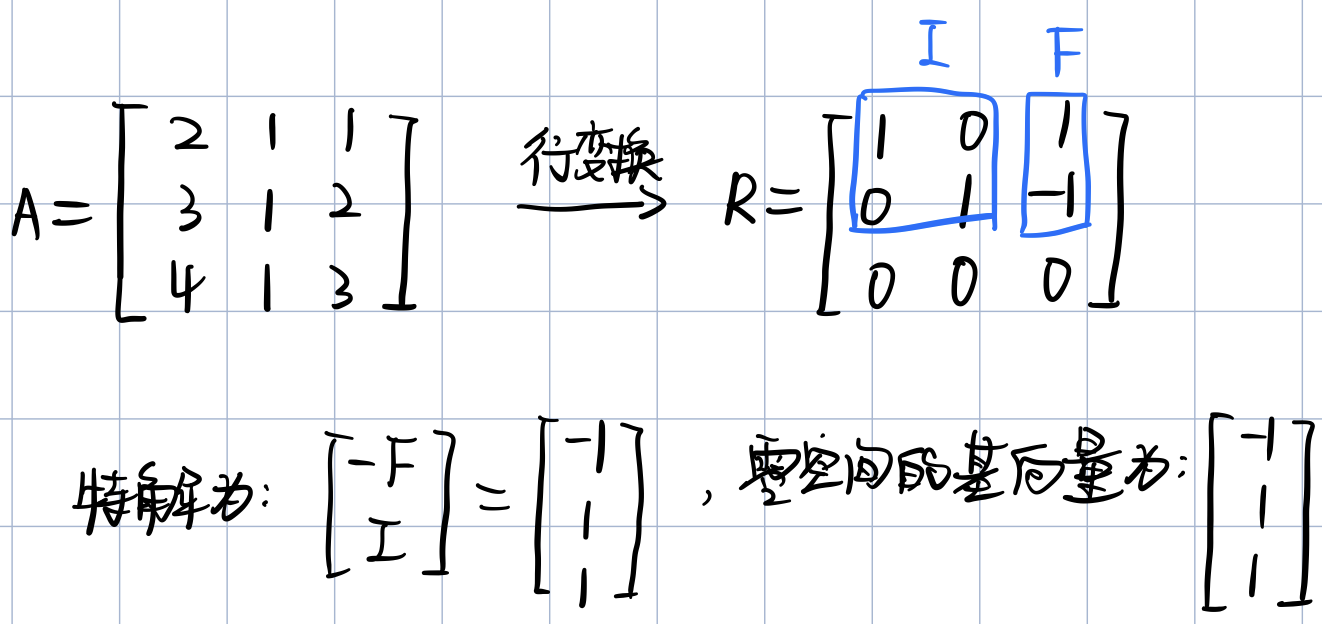 I F
A = [2 1 1; 3 1 2; 4 1 3] 行变换 → R = [1 0 1; 0 1 -1; 0 0 0]
特解为: [-F; I] = [-1; 1; 1] , 零空间的基向量为: [-1; 1; 1]